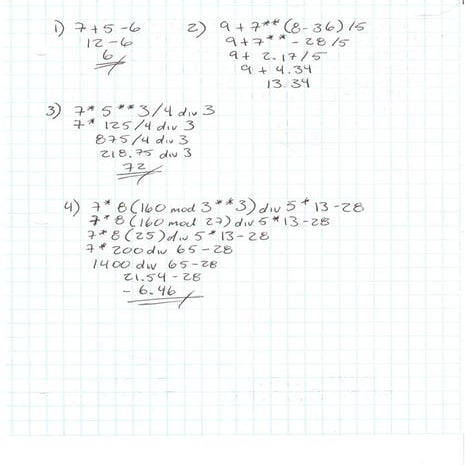 1) 7+5-6
12-6
6
2) 9+7**(8-36)/5
9+7**-28/5
9+2.17/5
9+4.34
13.34
3) 7*5**3/4 div 3
7*125/4 div 3
875/4 div 3
218.75 div 3
72
4) 7*8(160 mod 3**3) div 5*13-28
7*8(160 mod 27) div 5*13-28
7*8(25) div 5*13-28
7*200 div 65-28
1400 div 65-28
21.54-28
-6.46